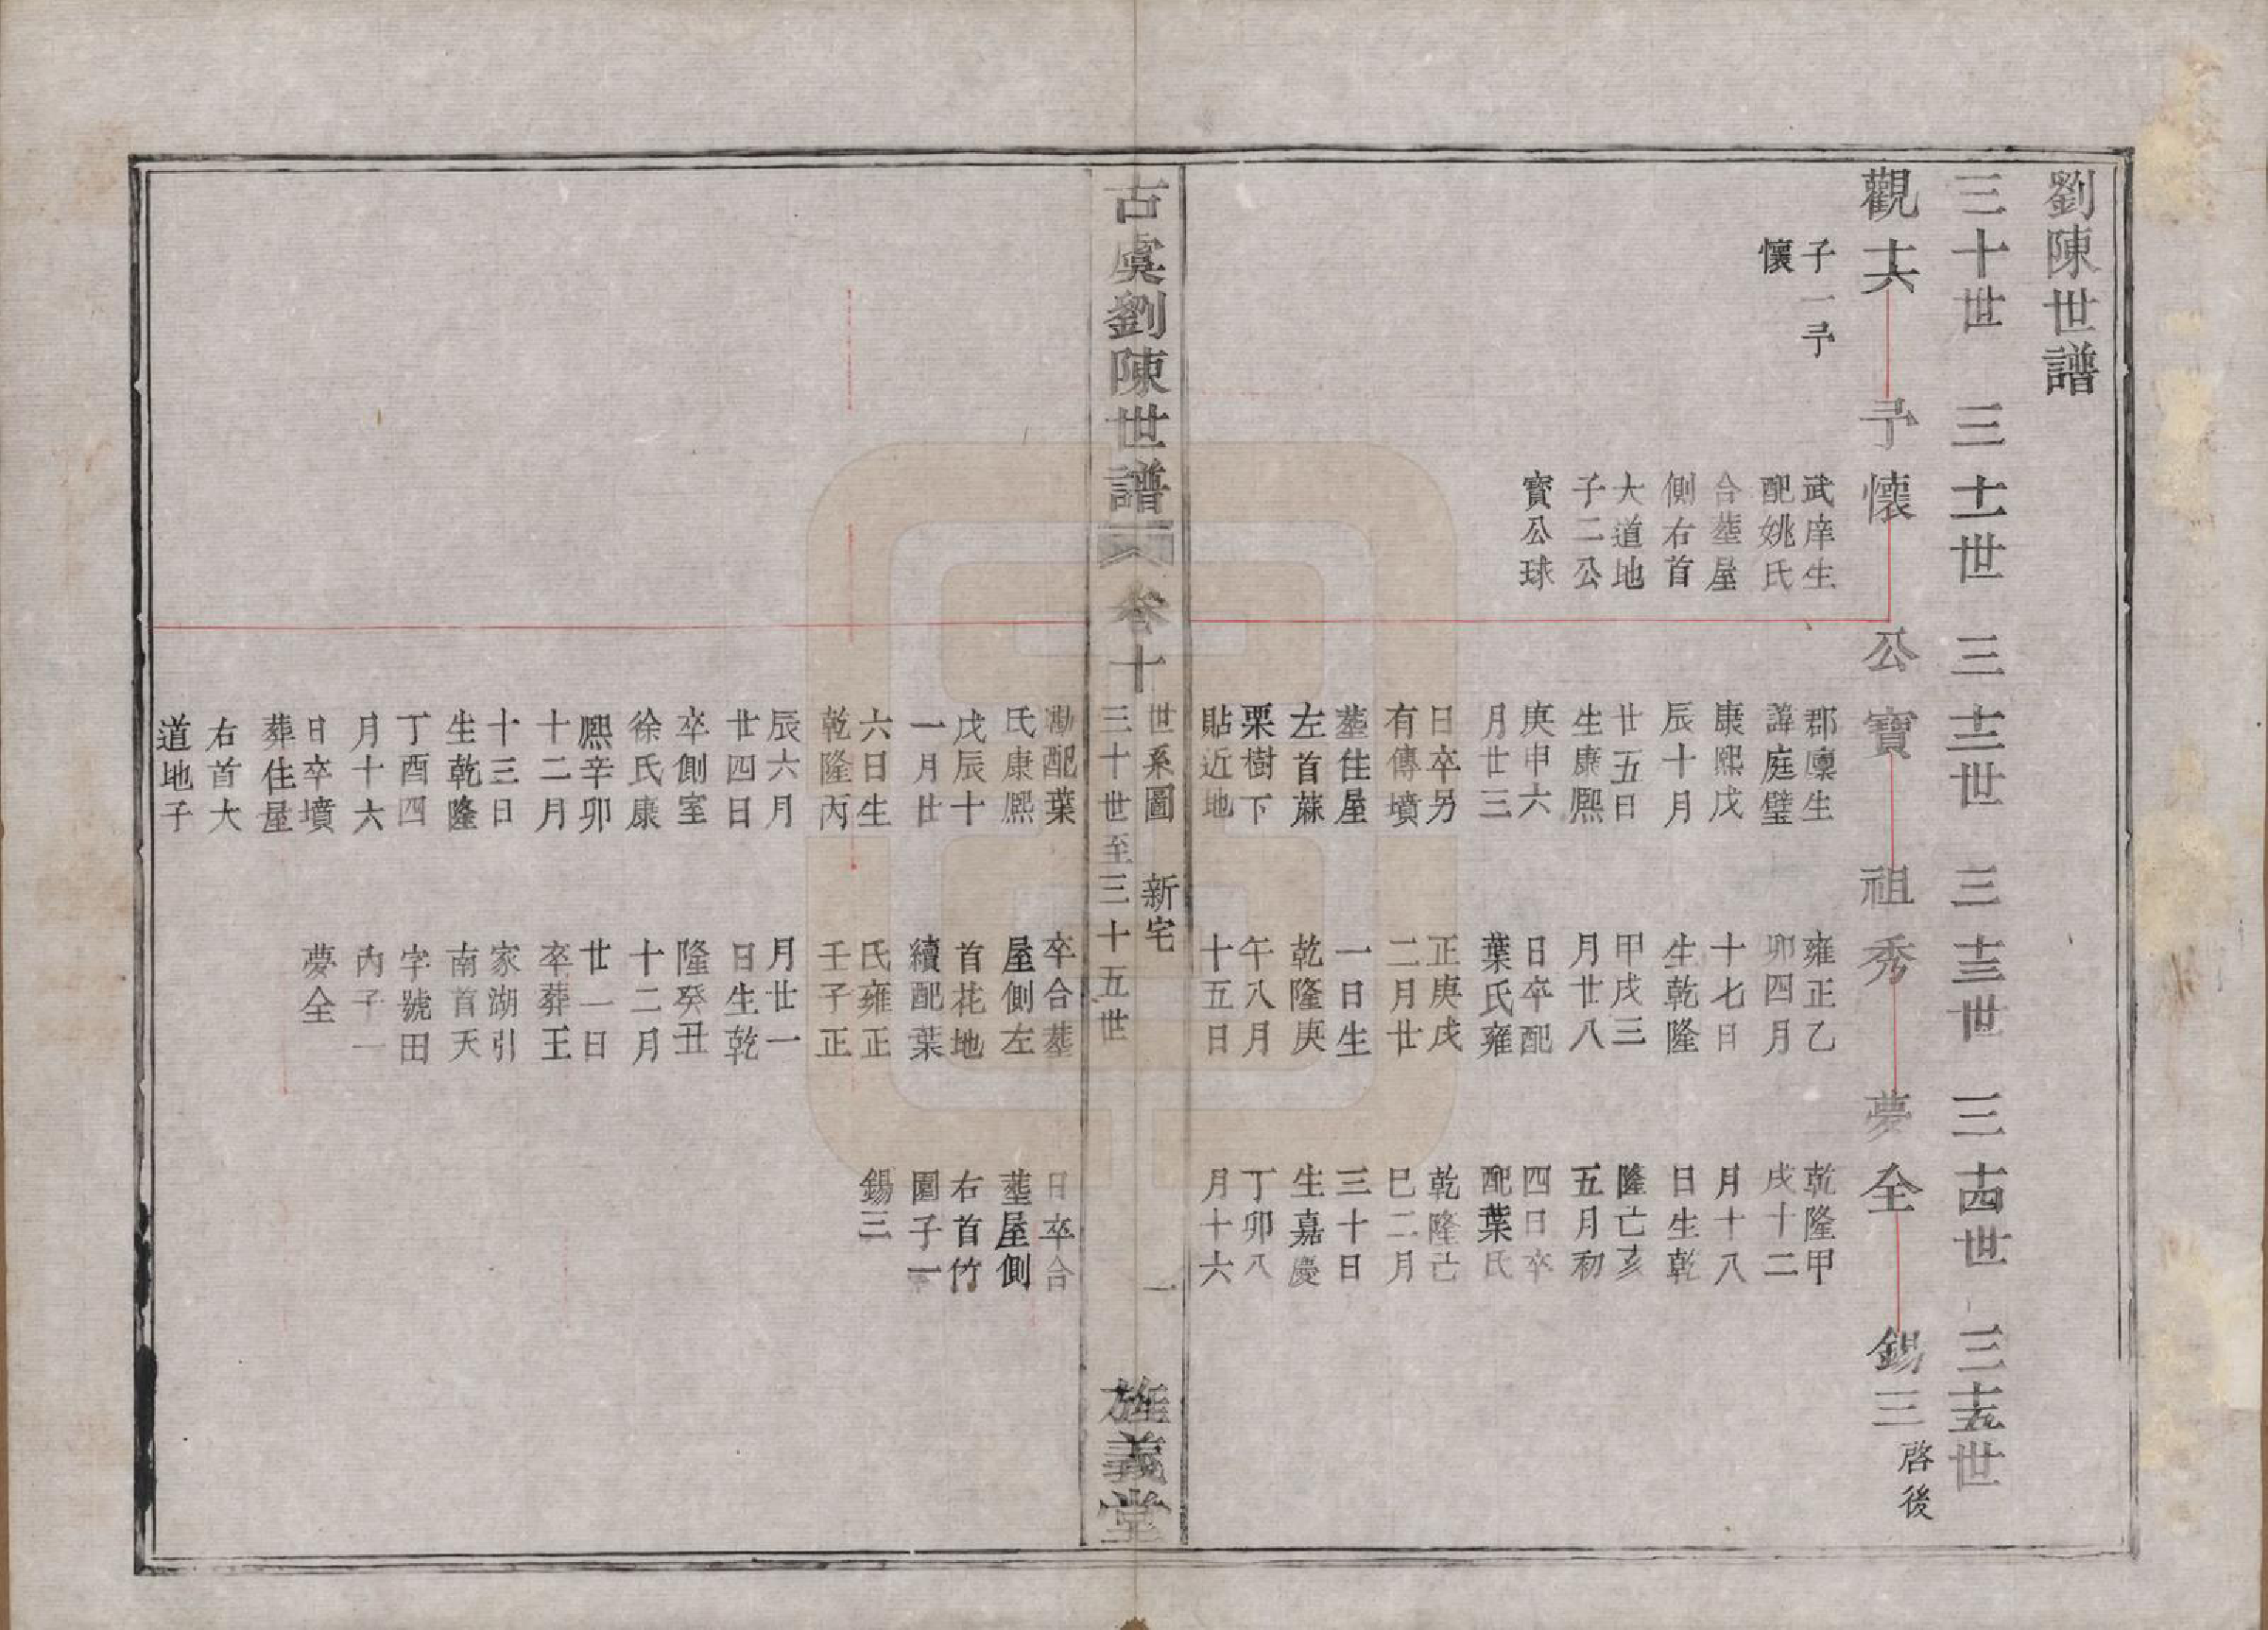 劉陳世譜
三十世
三十一世
三十二世
三十三世
三十四世
三十五世
觀大
子一予
懷
予懷
武庠生
配姚氏
合塟屋
側右首
大道地
子二公
寳公球
公寶
郡廩生
諱庭璧
康熙戊
辰十月
廿五日
生康熙
庚申六
月廿三
日卒另
有傳墳
塟住屋
左首蔴
栗樹下
貼近地
勘配葉
氏康熙
戊辰十
一月廿
六日生
乾隆丙
辰六月
廿四日
卒側室
徐氏康
熙辛卯
十二月
十三日
生乾隆
丁酉四
月十六
日卒墳
葬住屋
右首大
道地子
祖秀
雍正乙
卯四月
十七日
生乾隆
甲戌三
月廿八
日卒配
葉氏雍
正庚戌
二月廿
一日生
乾隆庚
午八月
十五日
卒合塟
屋側左
首花地
續配葉
氏雍正
壬子正
月廿一
日生乾
隆癸丑
十二月
廿一日
卒葬王
家湖引
南首天
字號田
內子一
夢全
夢全
乾隆甲
戌十二
月十八
日生乾
隆己亥
五月初
四日卒
配葉氏
乾隆己
巳二月
三十日
生嘉慶
丁卯八
月十六
日卒合
塟屋側
右首竹
園子一
錫三
錫三
啓後
古虞劉陳世譜
卷十
世系圖 新宅
三十世至三十五世
一
旌義堂